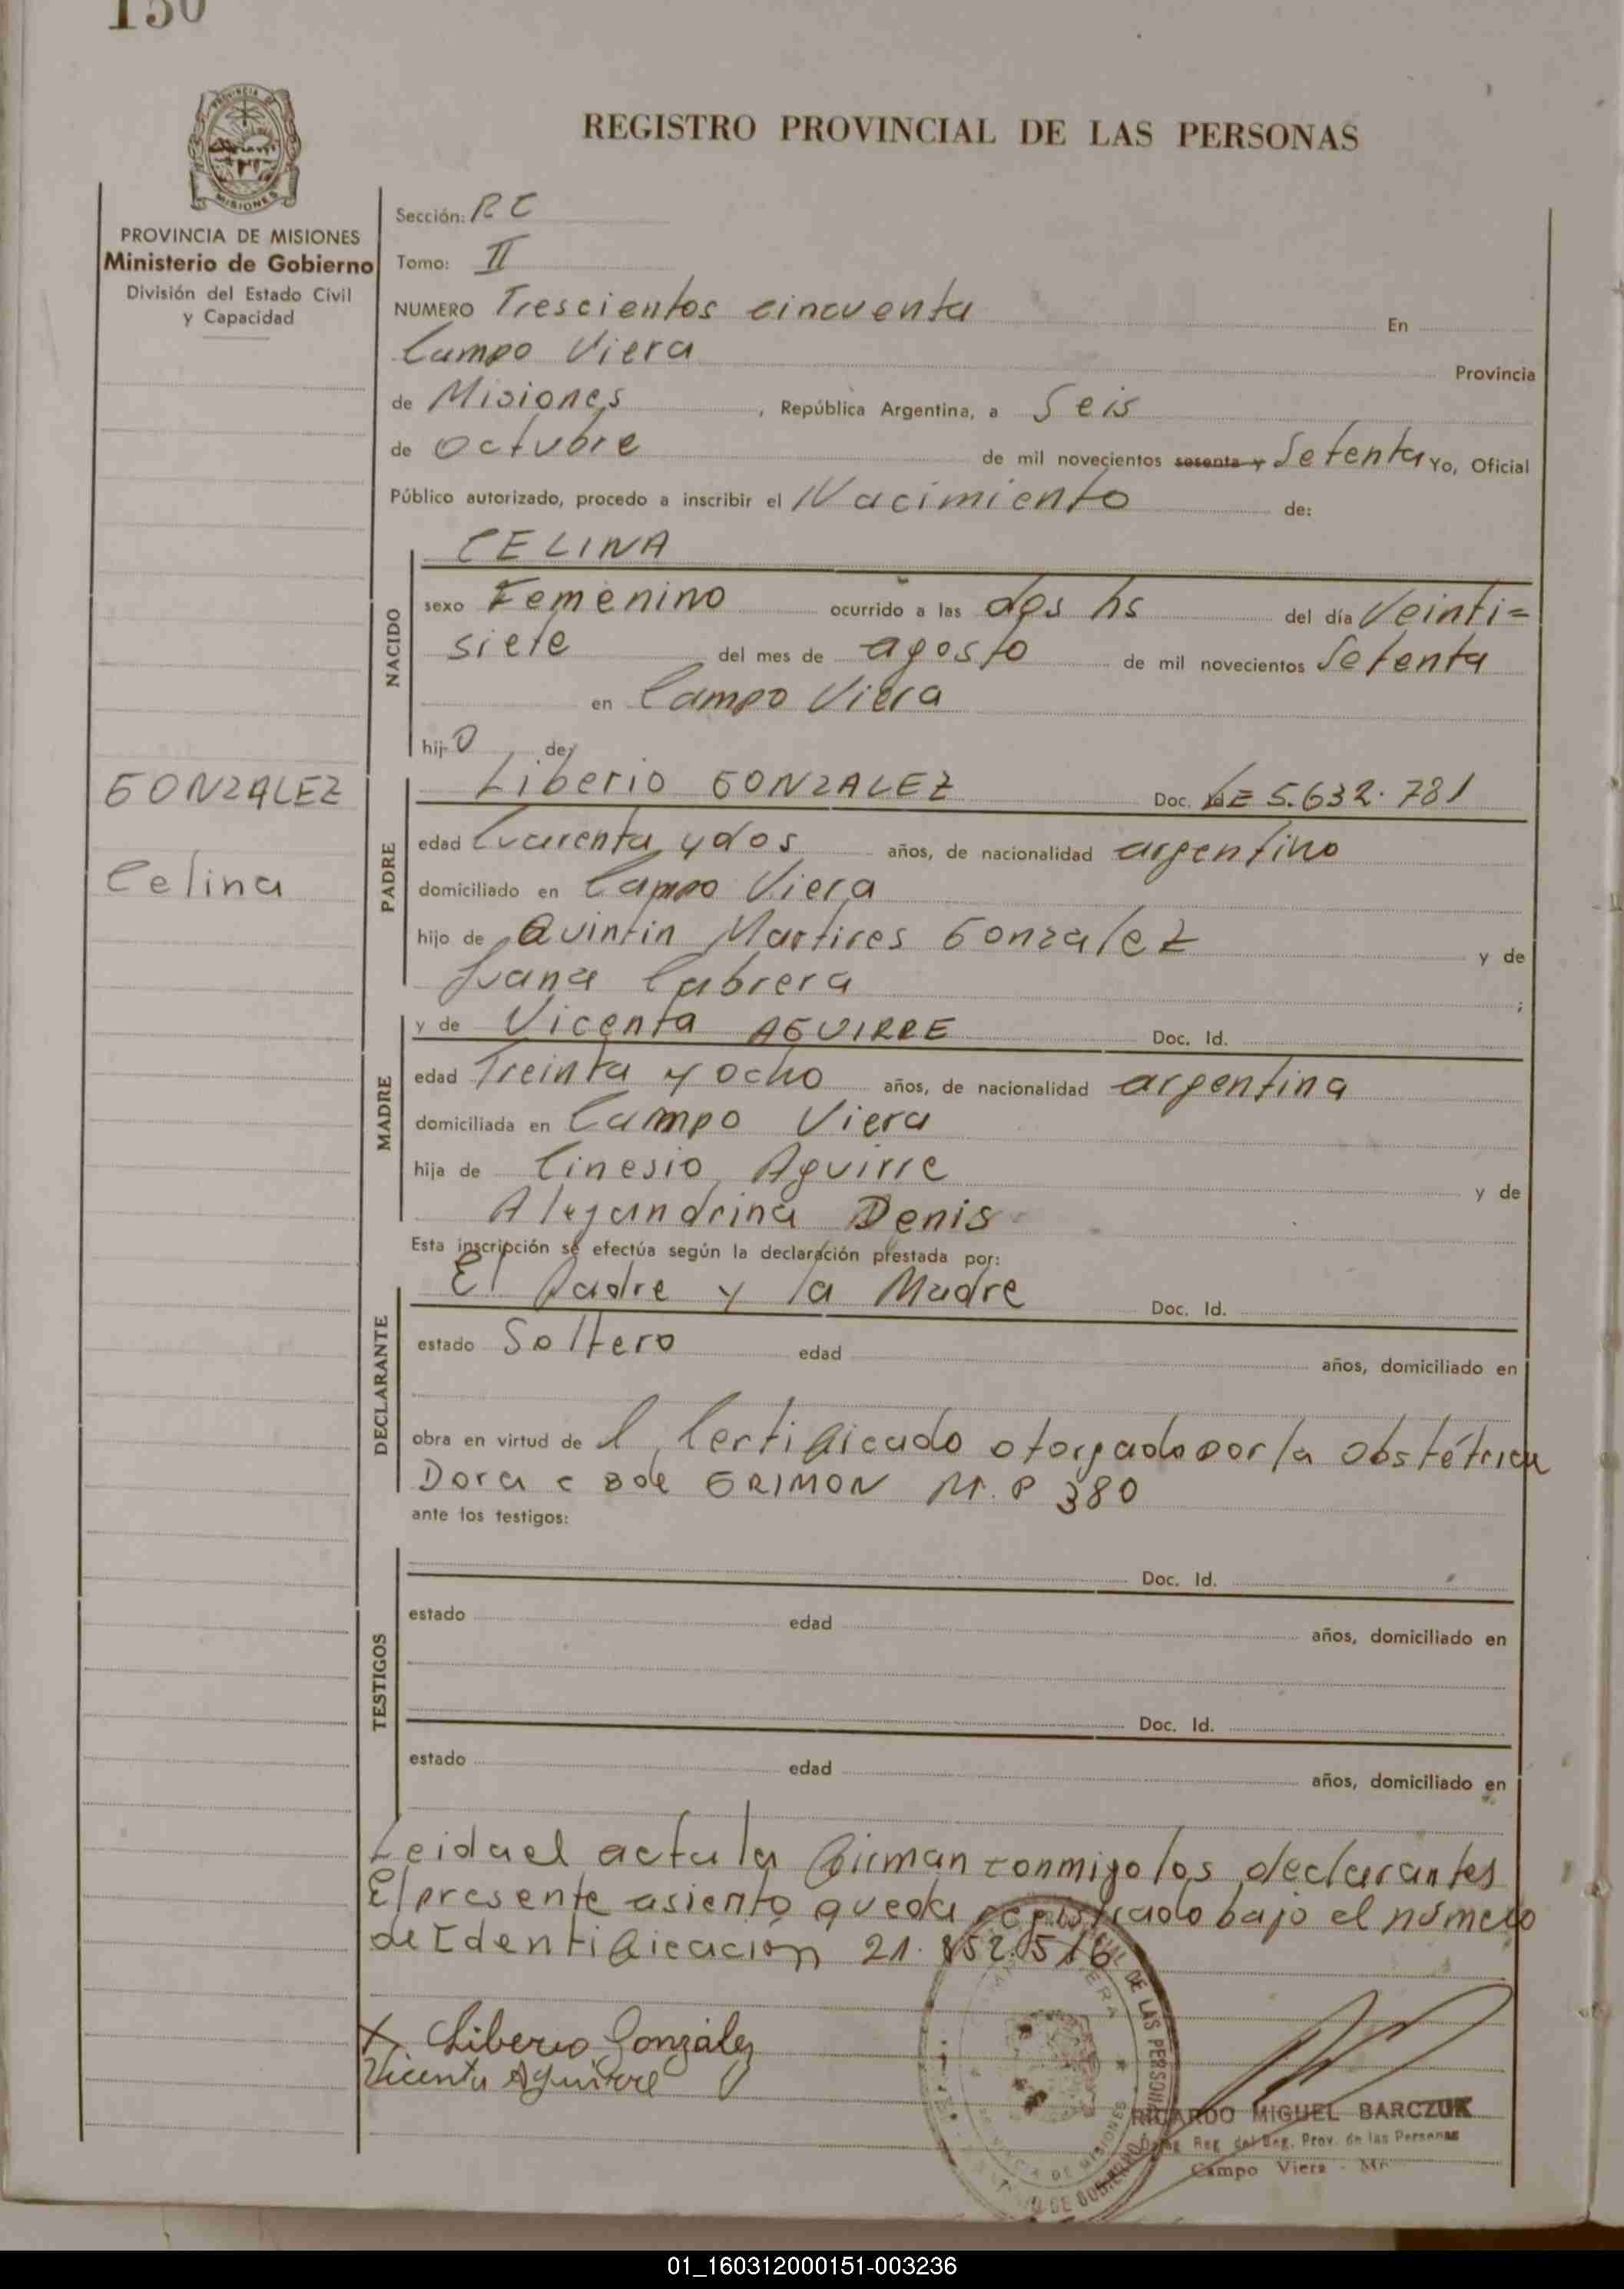 150
REGISTRO PROVINCIAL DE LAS PERSONAS
PROVINCIA DE MISIONES
Ministerio de Gobierno
División del Estado Civil
y Capacidad
Sección: R C
Tomo: II
NUMERO Trescientos cincuenta En
Campo Viera Provincia
de Misiones, República Argentina, a Seis
de Octubre de mil novecientos sesenta y Setenta Yo, Oficial
Público autorizado, procedo a inscribir el Nacimiento de:
NACIDO
CELINA
sexo Femenino ocurrido a las dos hs del día Veinti=
siete del mes de agosto de mil novecientos Setenta
en Campo Viera
hijo de
GONZALEZ
Celina
PADRE
Liberio GONZALEZ Doc. LE 5.632.781
edad Cuarenta y dos años, de nacionalidad argentino
domiciliado en Campo Viera
hijo de Quintin Martires Gonzalez y de
Juana Cabrera ;
MADRE
y de Vicenta AGUIRRE Doc. Id.
edad Treinta y ocho años, de nacionalidad argentina
domiciliada en Campo Viera
hija de Cinesio Aguirre y de
Alejandrina Denis
Esta inscripción se efectúa según la declaración prestada por:
DECLARANTE
El Padre y la Madre Doc. Id.
estado Soltero edad años, domiciliado en
obra en virtud de l Certificado otorgado por la obstétrica
Dora c B de GRIMON M.P 380
ante los testigos:
TESTIGOS
Doc. Id.
estado edad años, domiciliado en
Doc. Id.
estado edad años, domiciliado en
Leida el acta la firman conmigo los declarantes
El presente asiento queda registrado bajo el número
de Identificación 21.852.516
X Liberio González
Vicenta Aguirre
RICARDO MIGUEL BARCZUK
Deleg Reg del Reg. Prov. de las Personas
Campo Viera - Mnes
01_160312000151-003236